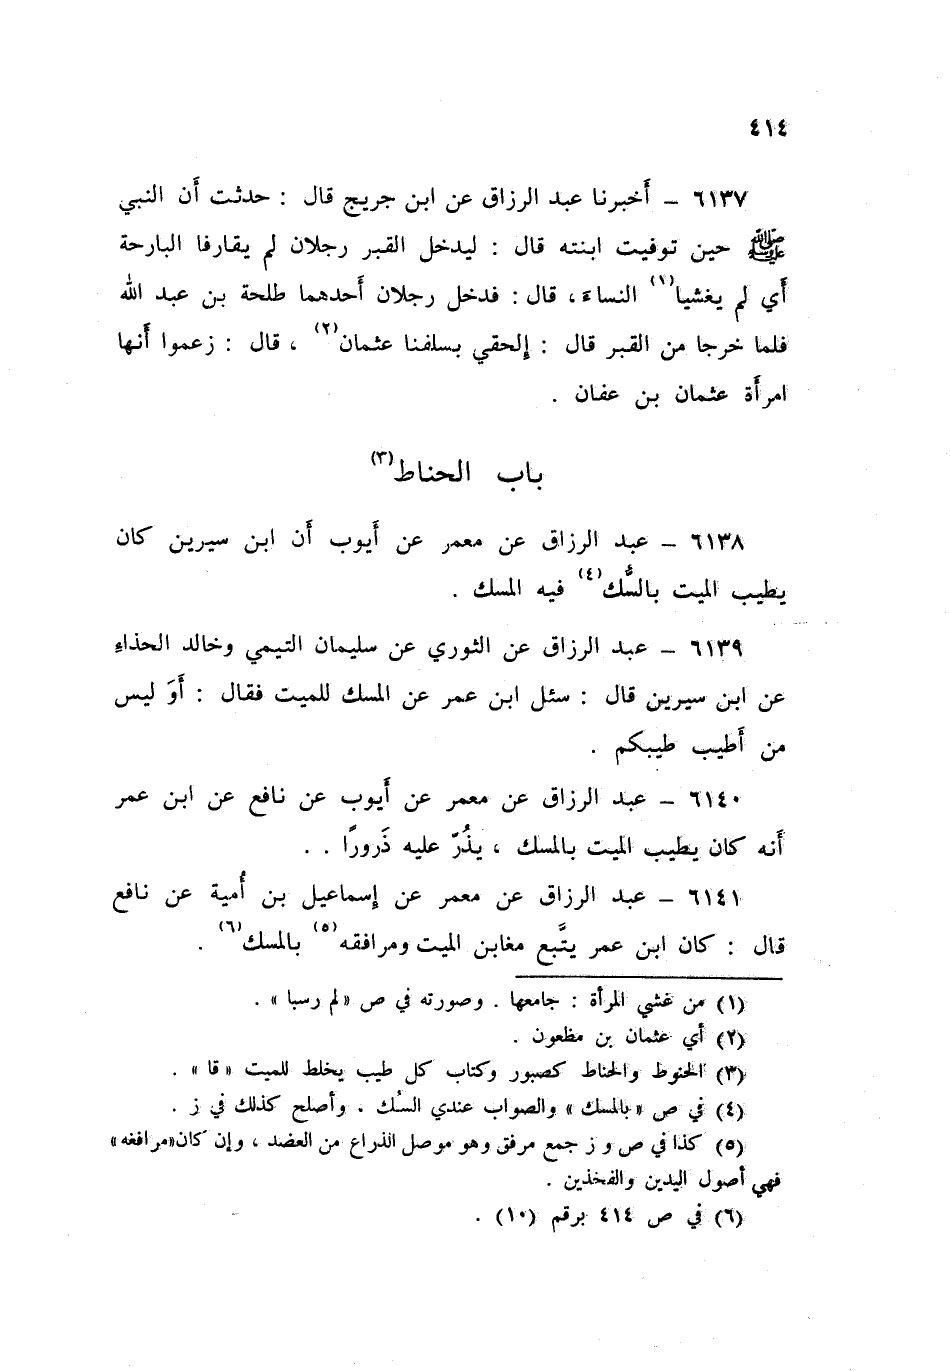 ٤١٤
٦١٣٧ – أَخبرنا عبد الرزاق عن ابن جريج قال : حدثت أَن النبي
ﷺ حين توفيت ابنته قال : ليدخل القبر رجلان لم يقارفا البارحة
أَي لم يغشيا(١) النساءَ ، قال : فدخل رجلان أَحدهما طلحة بن عبد الله
فلما خرجا من القبر قال : إلحقي بسلفنا عثمان(٢) ، قال : زعموا أَنها
امرأَة عثمان بن عفان .
باب الحناط(٣)
٦١٣٨ – عبد الرزاق عن معمر عن أَيوب أَن ابن سيرين كان
يطيب الميت بالسُّك(٤) فيه المسك .
٦١٣٩ – عبد الرزاق عن الثوري عن سليمان التيمي وخالد الحذاءِ
عن ابن سيرين قال : سئل ابن عمر عن المسك للميت فقال : أَوَ ليس
من أَطيب طيبكم .
٦١٤٠ – عبد الرزاق عن معمر عن أَيوب عن نافع عن ابن عمر
أَنه كان يطيب الميت بالمسك ، يذُرّ عليه ذَرورًا . .
٦١٤١ – عبد الرزاق عن معمر عن إسماعيل بن أُمية عن نافع
قال : كان ابن عمر يتَّبع مغابن الميت ومرافقه(٥) بالمسك(٦) .
(١) من غشي المرأة : جامعها . وصورته في ص «لم رسبا» .
(٢) أي عثمان بن مظعون .
(٣) الحنوط والحناط كصبور وكتاب كل طيب يخلط للميت «قا» .
(٤) في ص «بالمسك» والصواب عندي السُك . وأصلح كذلك في ز .
(٥) كذا في ص و ز جمع مرفق وهو موصل الذراع من العضد ، وإن كان«مرافغه»
فهي أصول اليدين والفخذين .
(٦) في ص ٤١٤ برقم (١٠) .